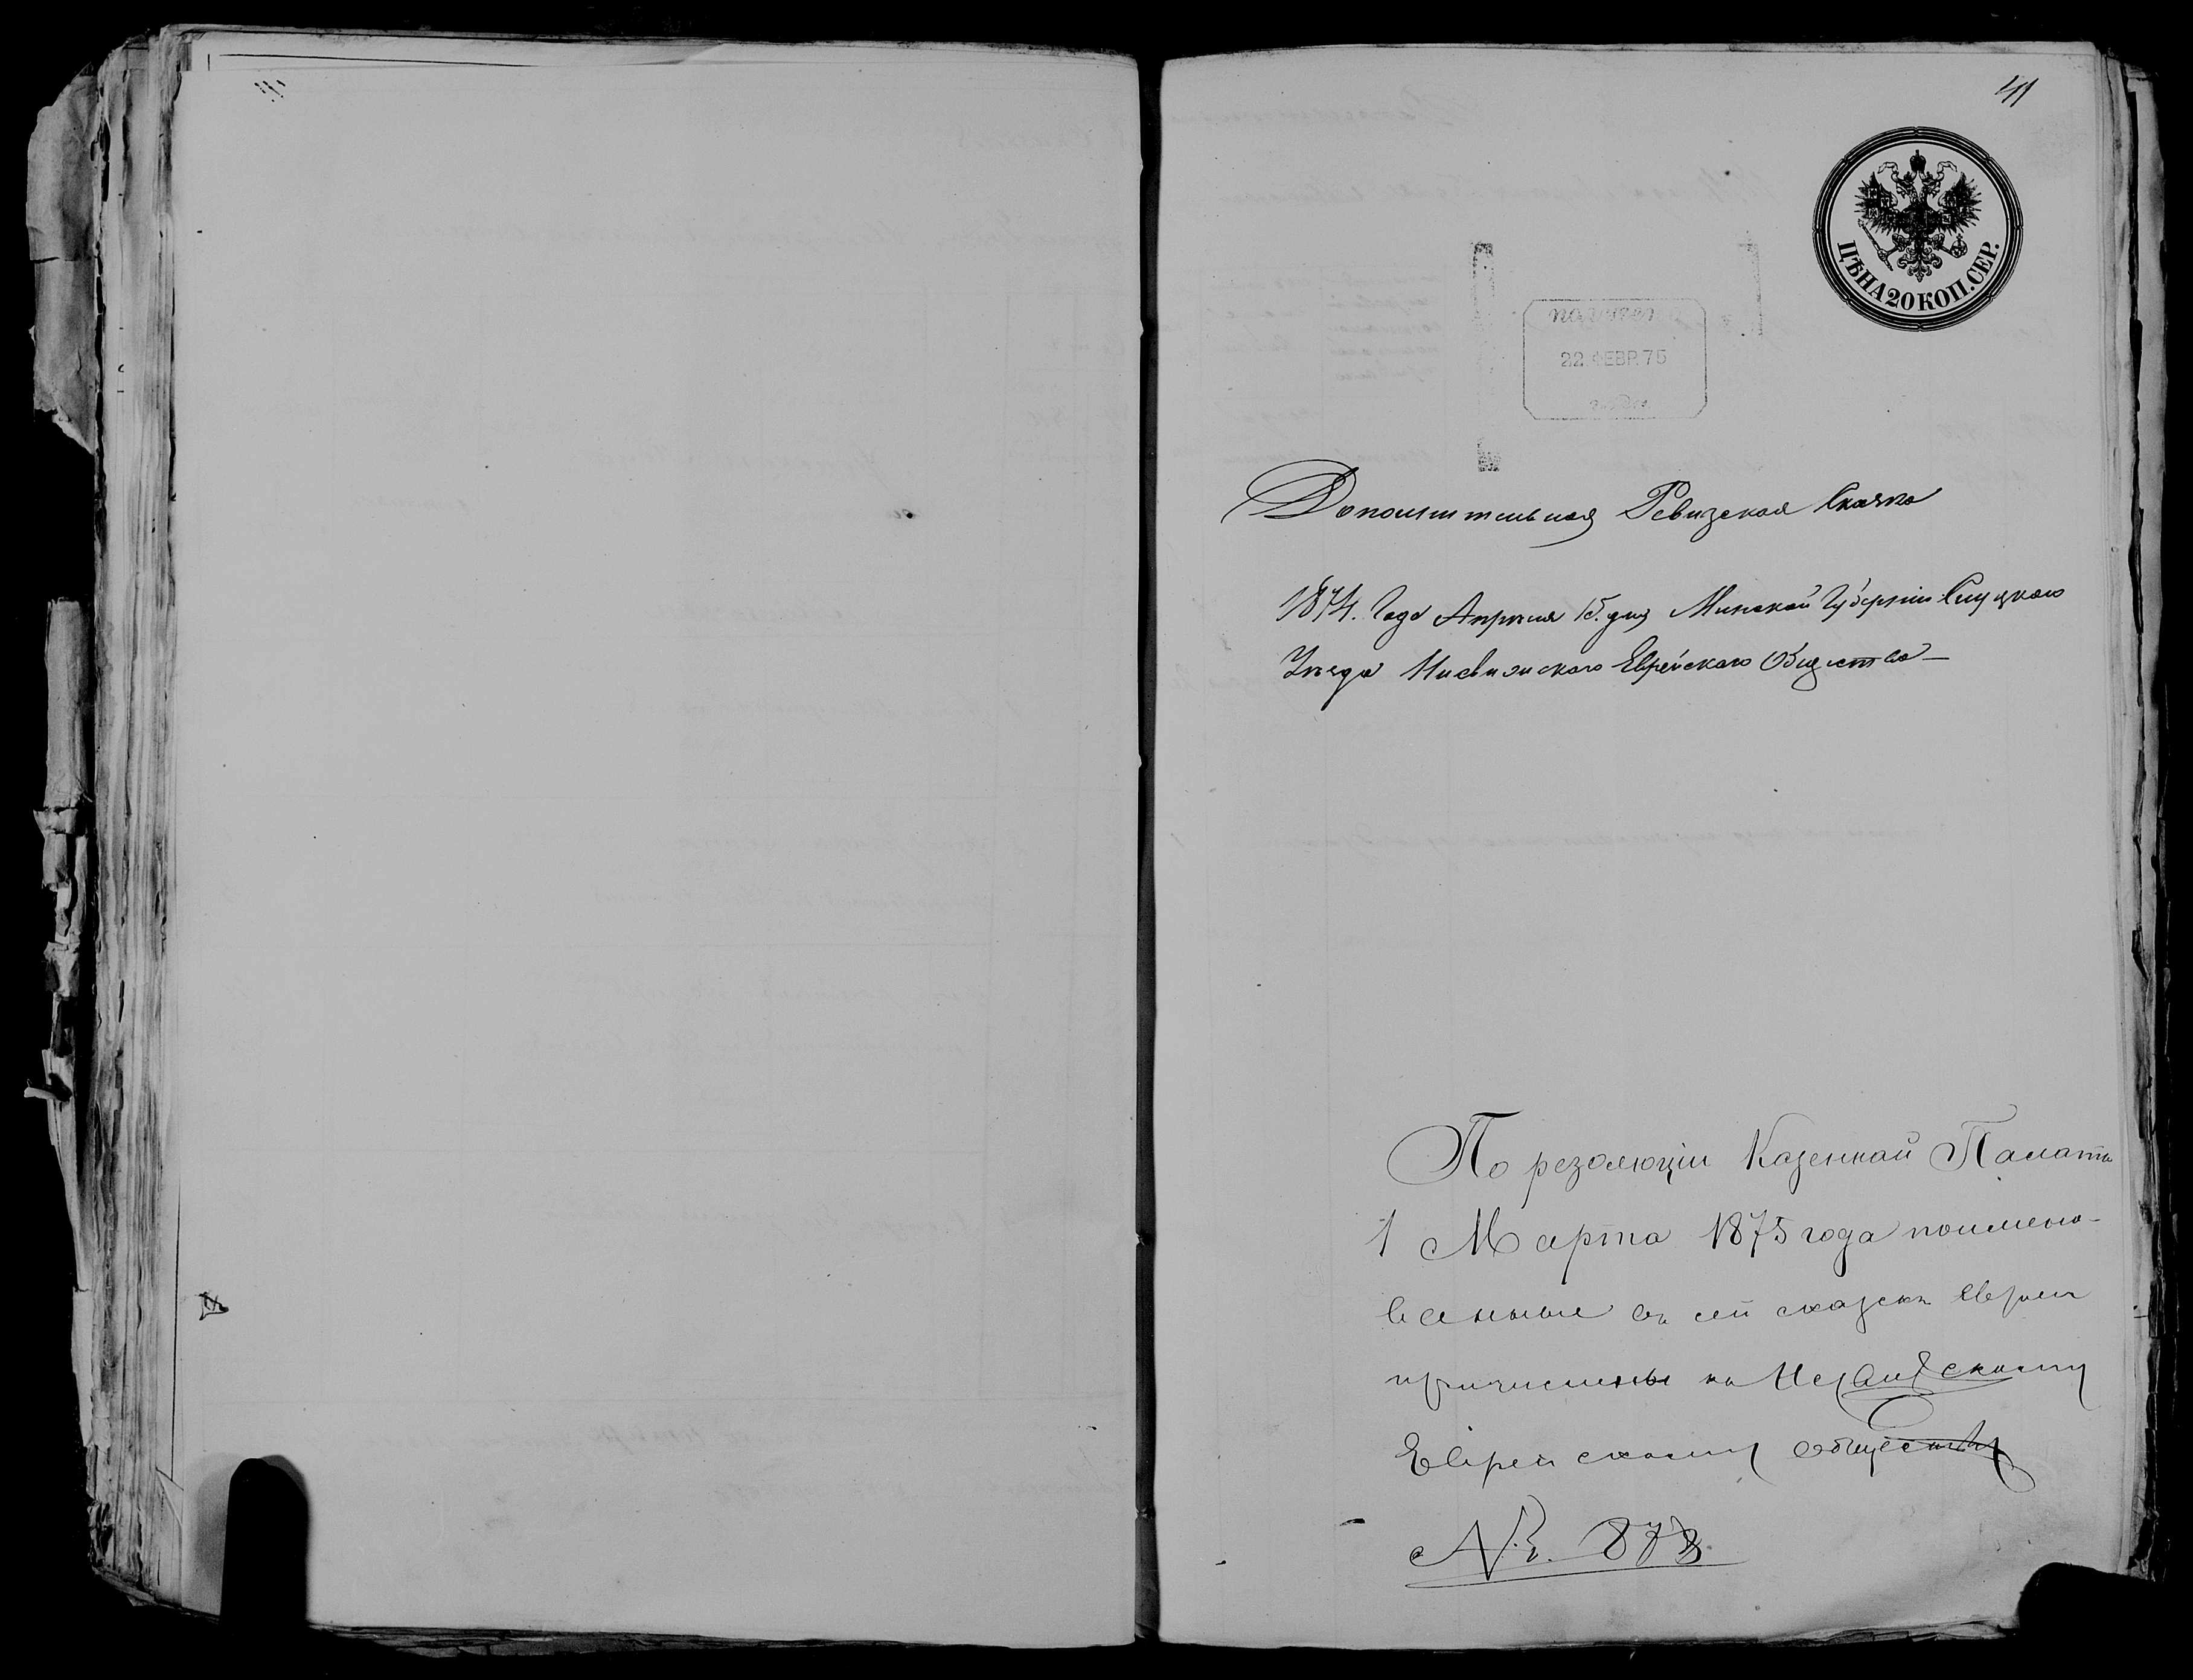 41
ЦѢНА 20 КОП. СЕР.
получен
22 ФЕВР. 75
Дополнительная Ревизская Сказка
1874. Года Апрѣля 15. дня Минской Губерніи Слуцкаго
Уѣзда Несвижскаго Еврейскаго Общества
По резолюціи Казенной Палаты
1 Марта 1875 года поимено-
ванные въ сей сказкѣ евреи
причислены къ Несвижскому
Еврейскому обществу
№. 878